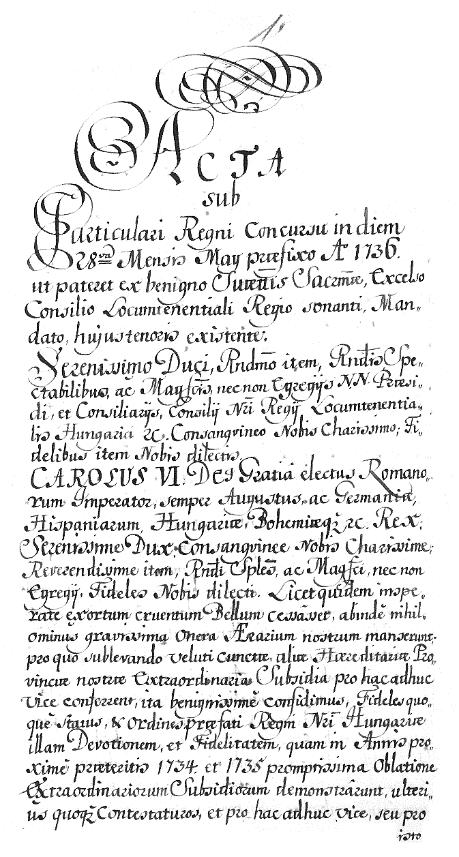 1.
ACTA
sub
Particulari Regni Concursu in diem
28va Mensis May præfixo Aº 1736.
ut pateret ex benigno Suæ Mttis Sacrmæ, Excelso
Consilio Locumtenentiali Regio sonanti, Man-
dato, hujus tenoris existente.
Serenissimo Duci, Rndmo item, Rndis Spe-
ctabilibus, ac Magfcis, nec non Egregijs NN. Præsi-
di, et Consiliarijs, Consilij Nri Regij Locumtenentia-
lis Hungarici &c. Consangvineo Nobis Charissimo; Fi-
delibus item Nobis dilectis.
CAROLUS VI. DEI Gratia electus Romano-
rum Imperator, semper Augustus, ac Germaniæ,
Hispaniarum, Hungariæ, Bohemiæq; &c. Rex,
Serenissime Dux Consangvinee Nobis Charissime;
Reverendissime item, Rndi Sples, ac Magfci, nec non
Egregij, Fideles Nobis dilecti. Licet quidem inspe-
rate exortum cruentum Bellum cessasset, abinde nihil-
ominus gravissima Onera Ærarium nostrum manserunt,
pro quo sublevando veluti cunctæ, aliæ Hæreditariæ Pro-
vinciæ nostræ Extraordinaria Subsidia pro hac adhuc
Vice conferrent, ita benignissime confidimus, Fideles quo-
que Status, & Ordines præfati Regni Nri Hungariæ
illam Devotionem, et Fidelitatem, quam in Annis pro-
xime præteritis 1734. et 1735 promptissima Oblatione
Extraordinariorum Subsidiorum demonstrarunt, ulteri-
us quoq; Contestaturos, et pro hac adhuc Vice, seu pro
isto